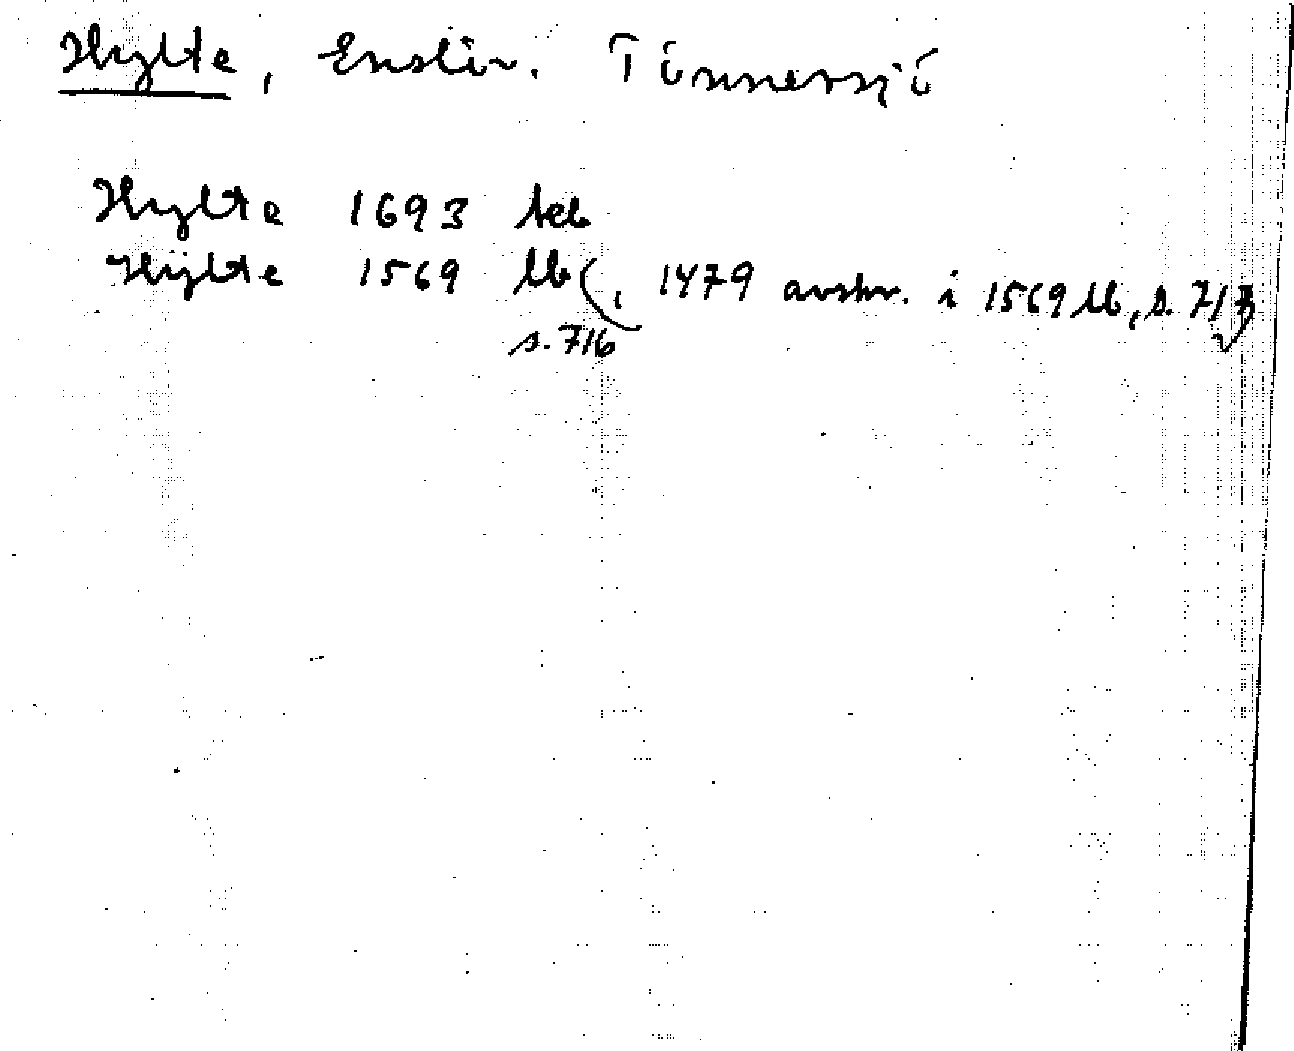 Hylte, Enslöv. Tönnersjö
Hylte 1693 teb
Hijlte 1569 lb, 1479 avskr. i 1569 lb, s. 713
s. 716